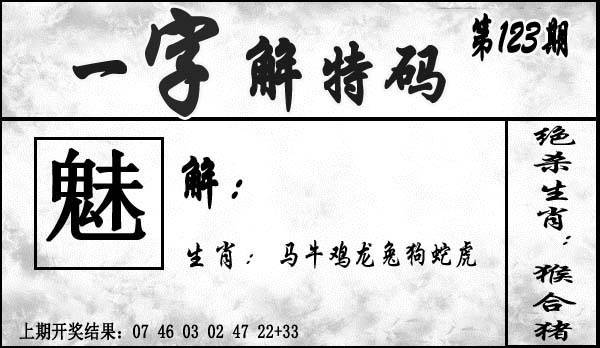 一字解特码
第123期
魅
解：
生肖：马牛鸡龙兔狗蛇虎
上期开奖结果：07 46 03 02 47 22+33
绝杀生肖：猴合猪